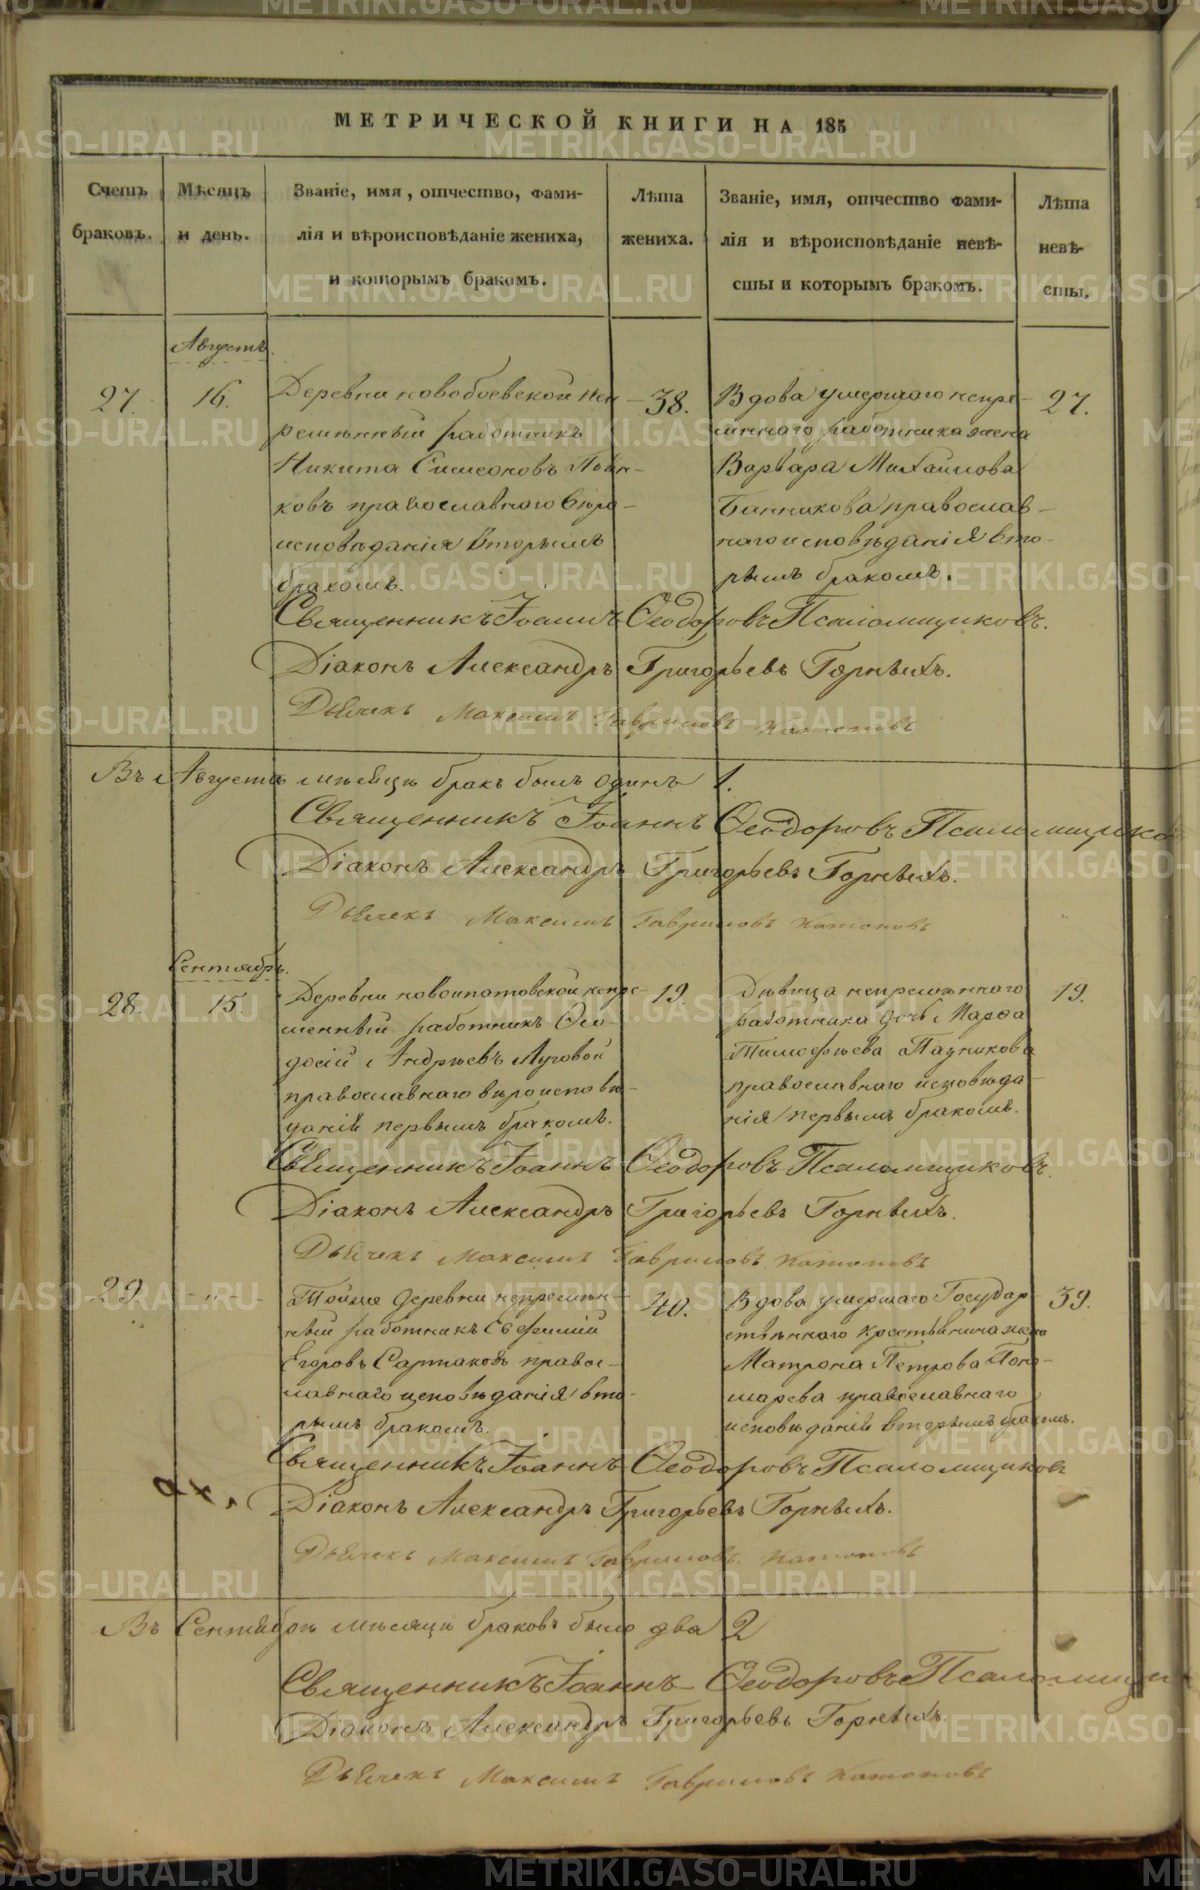 МЕТРИЧЕСКОЙ КНИГИ НА 185
Счетъ браковъ.
Мѣсяцъ и день.
Званіе, имя, отчество, фами-
лія и вѣроисповѣданіе жениха,
и которымъ бракомъ.
Лѣта
жениха.
Званіе, имя, отчество фами-
лія и вѣроисповѣданіе невѣ-
сты и которымъ бракомъ.
Лѣта
невѣ-
сты.
Августъ.
27.
16.
Деревни новобоевской неп
ремѣнный работникъ
Никита Симеоновъ
ковъ православнаго вѣро-
исповѣданія вторымъ
бракомъ.
38.
Вдова умершаго непре-
мѣннаго работника жена
Варвара Михайлова
Банникова православ-
наго исповѣданія вто-
рымъ бракомъ.
27.
Священникъ Іоаннъ Ѳеодоровъ Псаломщиковъ.
Діаконъ Александръ Григорьевъ Горныхъ.
Дьячекъ Максимъ Гавриловъ Катоновъ
Въ Августѣ мѣсяцѣ бракъ былъ одинъ 1.
Священникъ Іоаннъ Ѳеодоровъ Псаломщиков
Діаконъ Александръ Григорьевъ Горныхъ.
Дьячекъ Максимъ Гавриловъ Катоновъ
Сентябрь.
28.
15
Деревни новоипатовской непре-
менный работникъ Ѳео
досій Андрѣевъ Луговой
православнаго вѣроисповѣ-
даній первымъ бракомъ.
19.
Дѣвица непремѣннаго
работника дочь Марѳа
Тимофѣева Пазникова
православнаго исповѣда-
нія первымъ бракомъ.
19.
Священникъ Іоаннъ Ѳеодоровъ Псаломщиковъ
Діаконъ Александръ Григорьевъ Горныхъ.
Дьячекъ Максимъ Гавриловъ Катоновъ
29.
-"-
Тойже деревни непремѣн-
ный работникъ Евфимій
Егоровъ Сартаковъ правос-
лавнаго исповѣданія вто-
рымъ бракомъ.
40.
Вдова умершаго Государ-
ственнаго крестьянина жена
Матрона Петрова Поно-
марева православнаго
исповѣданій вторымъ бракомъ.
39.
Священникъ Іоаннъ Ѳеодоровъ Псаломщиковъ
Діаконъ Александръ Григорьевъ Горныхъ.
Дьячекъ Максимъ Гавриловъ Катоновъ
Въ Сентябрѣ мѣсяцѣ браковъ было два 2
Священникъ Іоаннъ Ѳеодоровъ Псаломщик
Діаконъ Александръ Григорьевъ Горныхъ.
Дьячекъ Максимъ Гавриловъ Катоновъ
METRIKI.GASO-URAL.RU